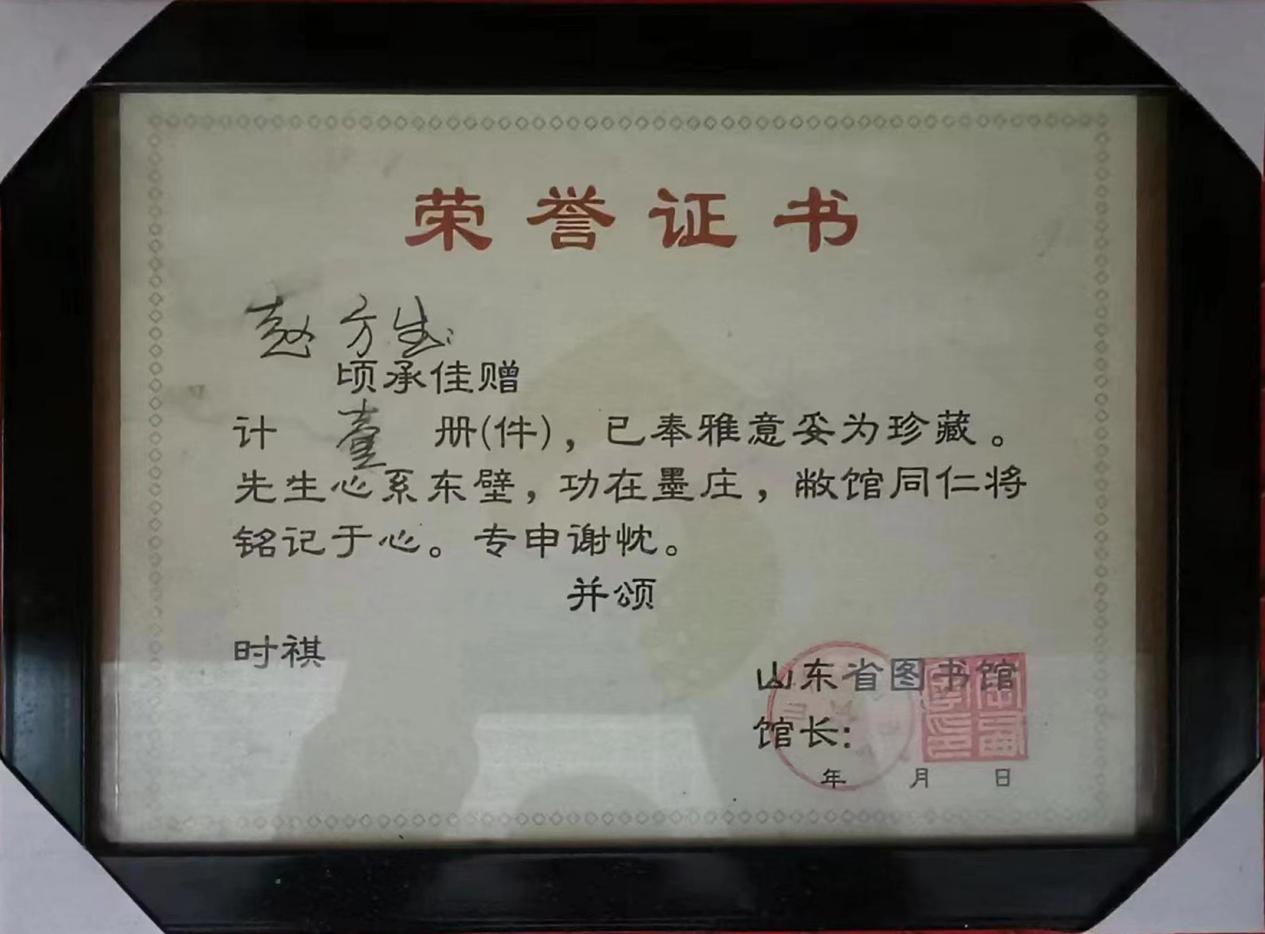 荣誉证书
赵方生:
顷承佳赠
计 壹 册(件),已奉雅意妥为珍藏。
先生心系东壁,功在墨庄,敝馆同仁将
铭记于心。专申谢忱。
并颂
时祺
山东省图书馆
馆长:
年 月 日